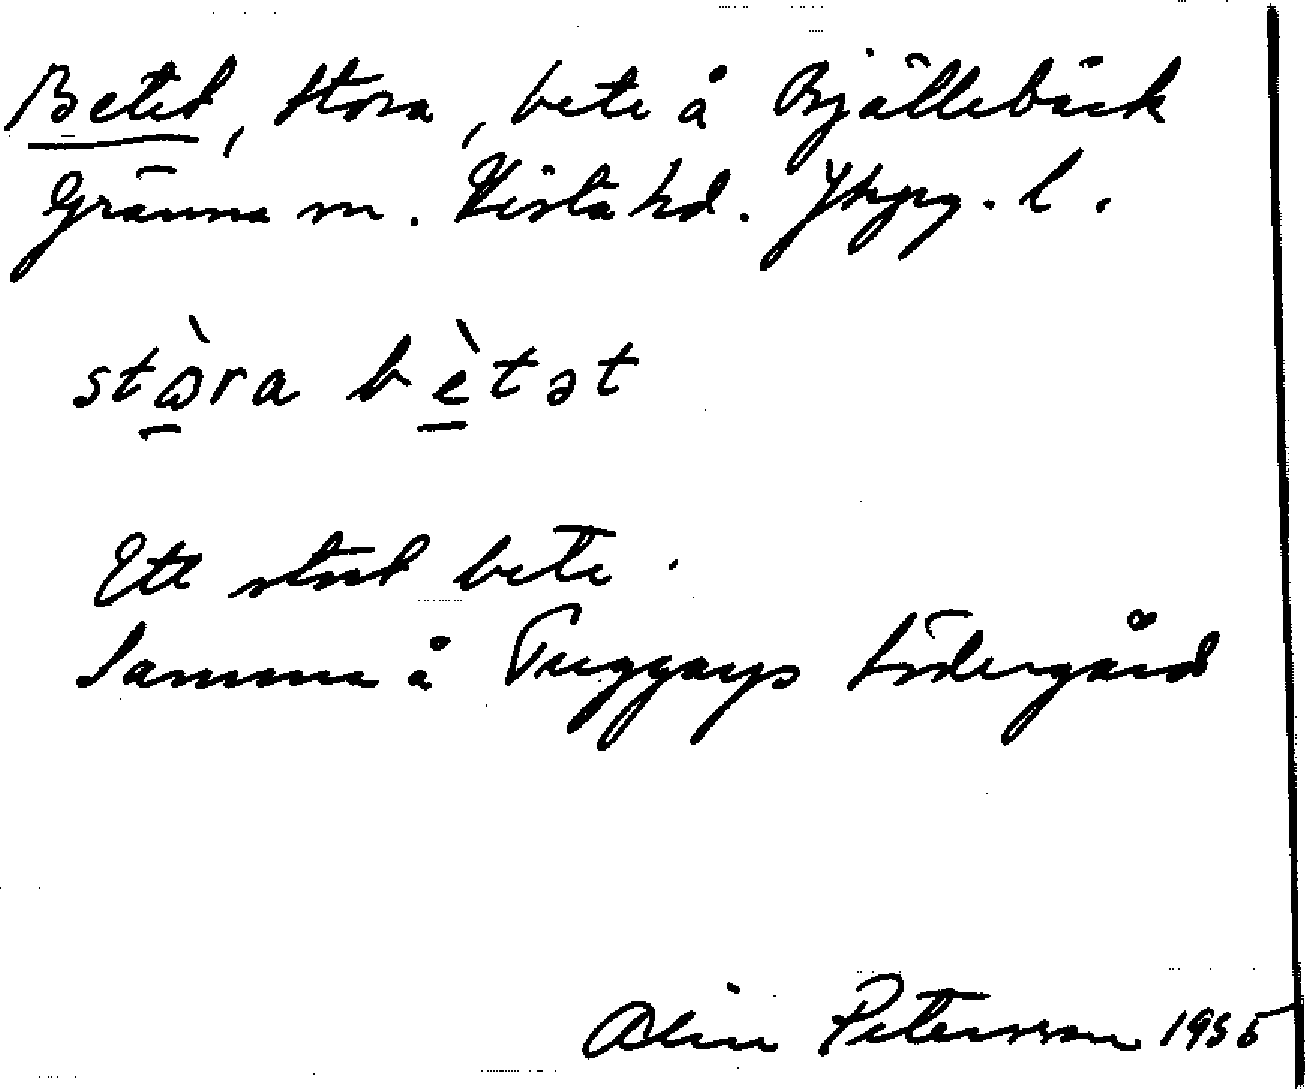 Betet, Stora, bete å Bjällebäck
Gränna sn. Vista hd. Jkpg. l.
stɷ̀ra bètət
Ett stort bete.
Samma å Södergård
Petersson 1955